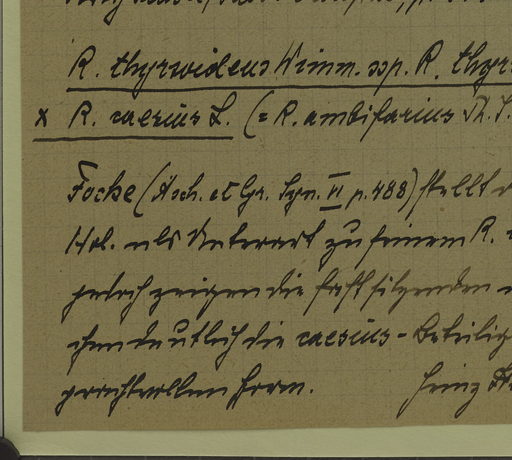 R. thyrsoideus Wimm. ssp. R. thyrs
x R. caesius L. (= R. ambifarius
Focke (Asch. et Gr. Syn. VI p. 488) stellt
Hol. als Unterart zu seinem R.
jedoch zeigen die fast filzenden
ihm deutlich die caesius - Beteilig
prachtvollen Form. Heinz